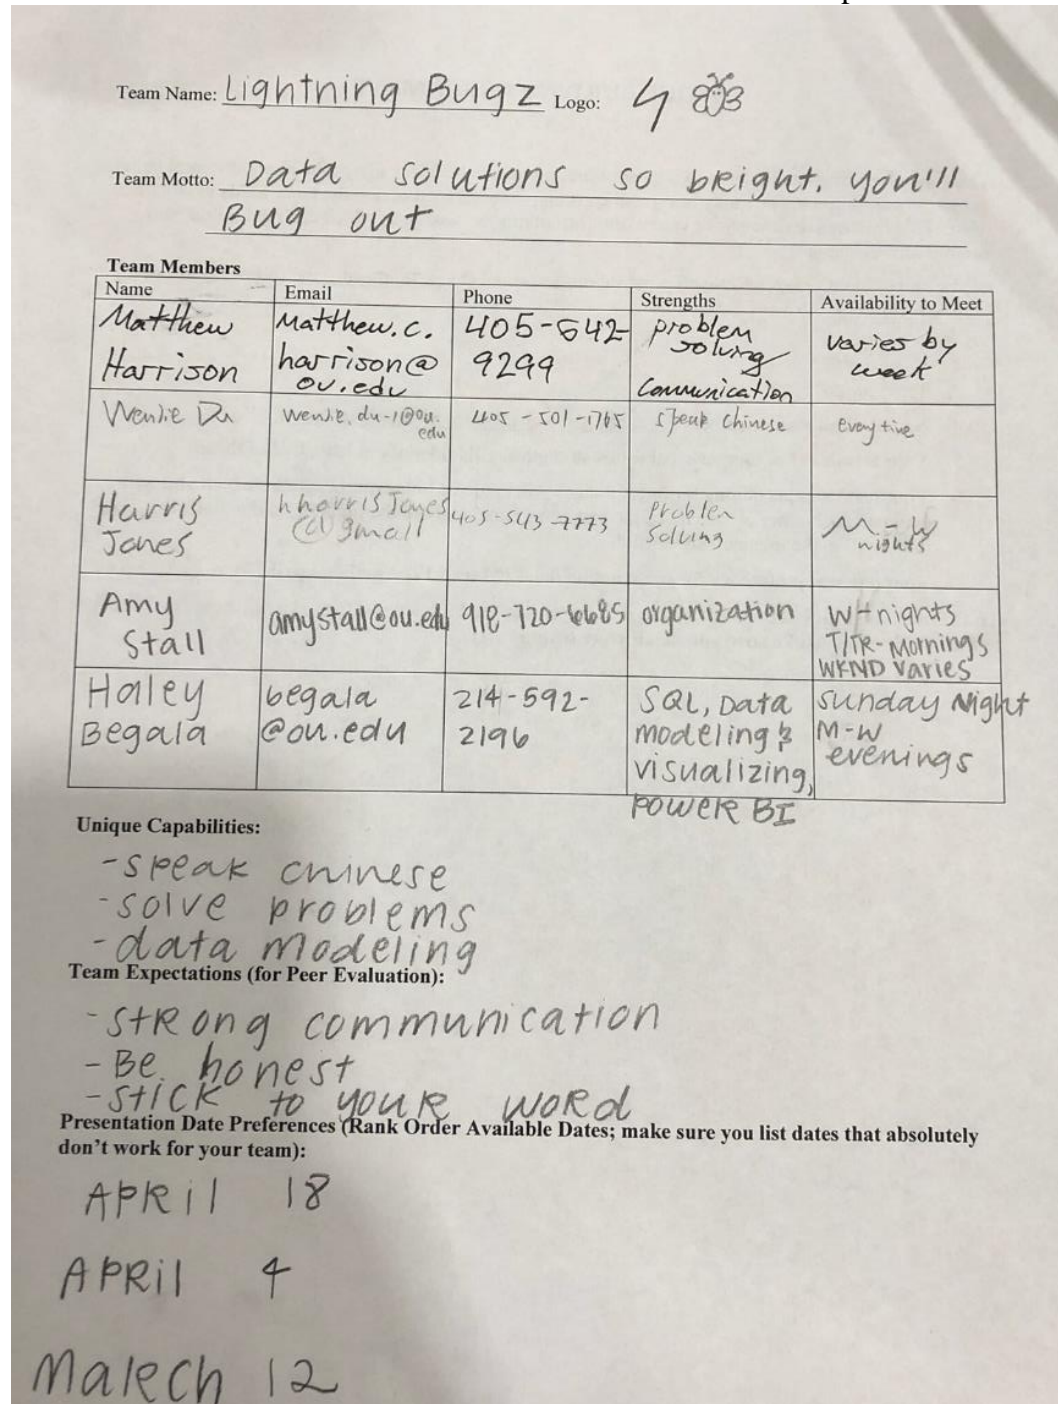 Team Name: Lightning Bugz Logo:
Team Motto: Data solutions so bright, you'll
Bug out
Team Members
Name Email Phone Strengths Availability to Meet
Matthew Harrison Matthew.c.harrison@ou.edu 405-642-9299 problem solving communication varies by week
Wenjie Du wenjie.du-1@ou.edu 405-501-1765 speak Chinese every time
Harris Jones hharrisjones@gmail 405-543-7773 Problem Solving M-W nights
Amy Stall amystall@ou.edu 918-720-6685 organization nights T/TR-Mornings WKND varies
Haley Begala begala@ou.edu 214-592-2196 SQL, Data modeling & visualizing, Power BI Sunday Night M-W evenings
Unique Capabilities:
-speak chinese
-solve problems
-data modeling
Team Expectations (for Peer Evaluation):
-strong communication
-Be honest
-stick to your word
Presentation Date Preferences (Rank Order Available Dates; make sure you list dates that absolutely
don't work for your team):
April 18
April 4
March 12